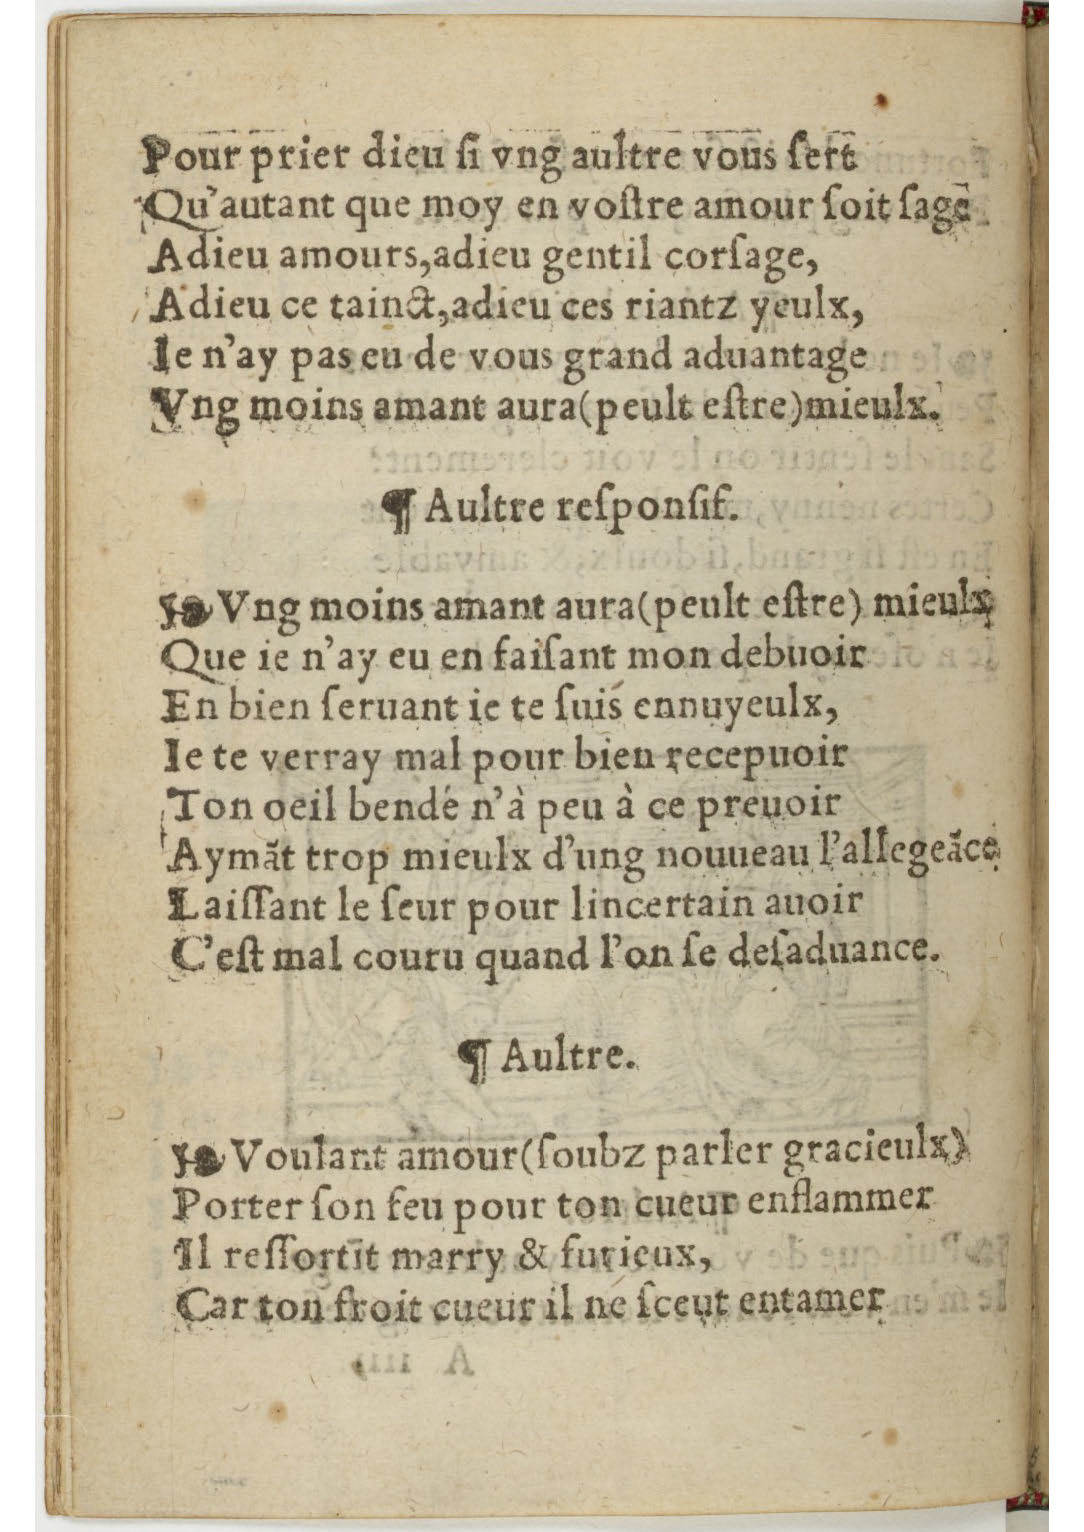 Pour prier dieu ſi vng aultre vous ſert
Qu'autant que moy en voſtre amour ſoit ſage
Adieu amours,adieu gentil corſage,
Adieu ce tainct,adieu ces riantz yeulx,
Ie n'ay pas eu de vous grand aduantage
Vng moins amant aura(peult eſtre)mieulx.
¶ Aultre reſponſif.
❧ Vng moins amant aura(peult eſtre) mieulx
Que ie n'ay eu en faiſant mon debuoir
En bien ſeruant ie te ſuis ennuyeulx,
Ie te verray mal pour bien recepuoir
Ton oeil bendé n'à peu à ce preuoir
Aymãt trop mieulx d'ung nouueau l'allegeãce
Laiſſant le ſeur pour lincertain auoir
C'eſt mal couru quand l'on ſe deſaduance.
¶ Aultre.
❧ Voulant amour(ſoubz parler gracieulx)
Porter ſon feu pour ton cueur enflammer
Il reſſortit marry & furieux,
Car ton froit cueur il ne ſceut entamer